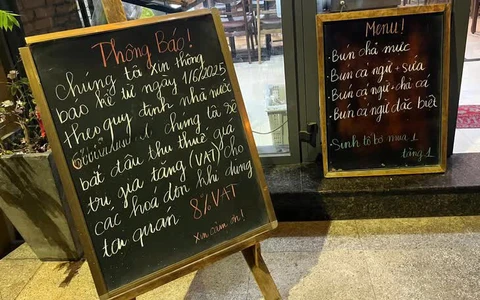 Thông Báo!
Chúng tôi xin thông
báo kể từ ngày 1/6/2025
theo quy định nhà nước
chúng tôi sẽ
bắt đầu thu thuế giá
trị gia tăng (VAT) cho
các hoá đơn khi dùng
tại quán 8% VAT
Xin cảm ơn!
Menu!
• Bún chả mực
• Bún cá ngừ + sứa
• Bún cá ngừ + chả cá
• Bún cá ngừ đặc biệt
Sinh tố bơ mua 1
tặng 1